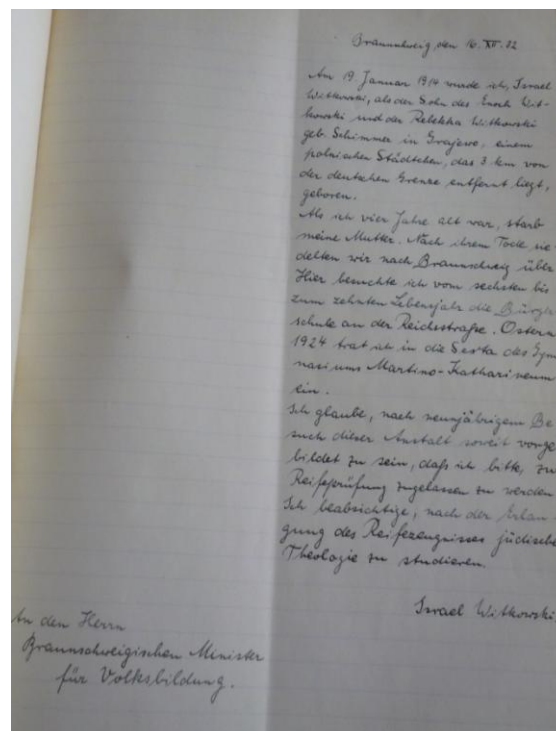 Braunschweig, den 16. XII. 32
Am 19. Januar 1914 wurde ich, Israel
Witkowski, als der Sohn des Enoch Wit-
kowski und der Rebekka Witkowski
geb. Schimmer in Grajewo, einem
polnischen Städtchen, das 3 km von
der deutschen Grenze entfernt liegt,
geboren.
Als ich vier Jahre alt war, starb
meine Mutter. Nach ihrem Tode sie-
delten wir nach Braunschweig über
Hier besuchte ich vom sechsten bis
zum zehnten Lebensjahr die Bürger
schule an der Reichsstraße. Ostern
1924 trat ich in die Sexta des Gym
nasiums Martino-Katharineum
ein.
Ich glaube, nach neunjährigem Be
such dieser Anstalt soweit vorge
bildet zu sein, daß ich bitte, zu
Reifeprüfung zugelassen zu werden
Ich beabsichtige, nach der Erlan
gung des Reifezeugnisses jüdische
Theologie zu studieren.
Israel Witkowski
An den Herrn
Braunschweigischen Minister
für Volksbildung.